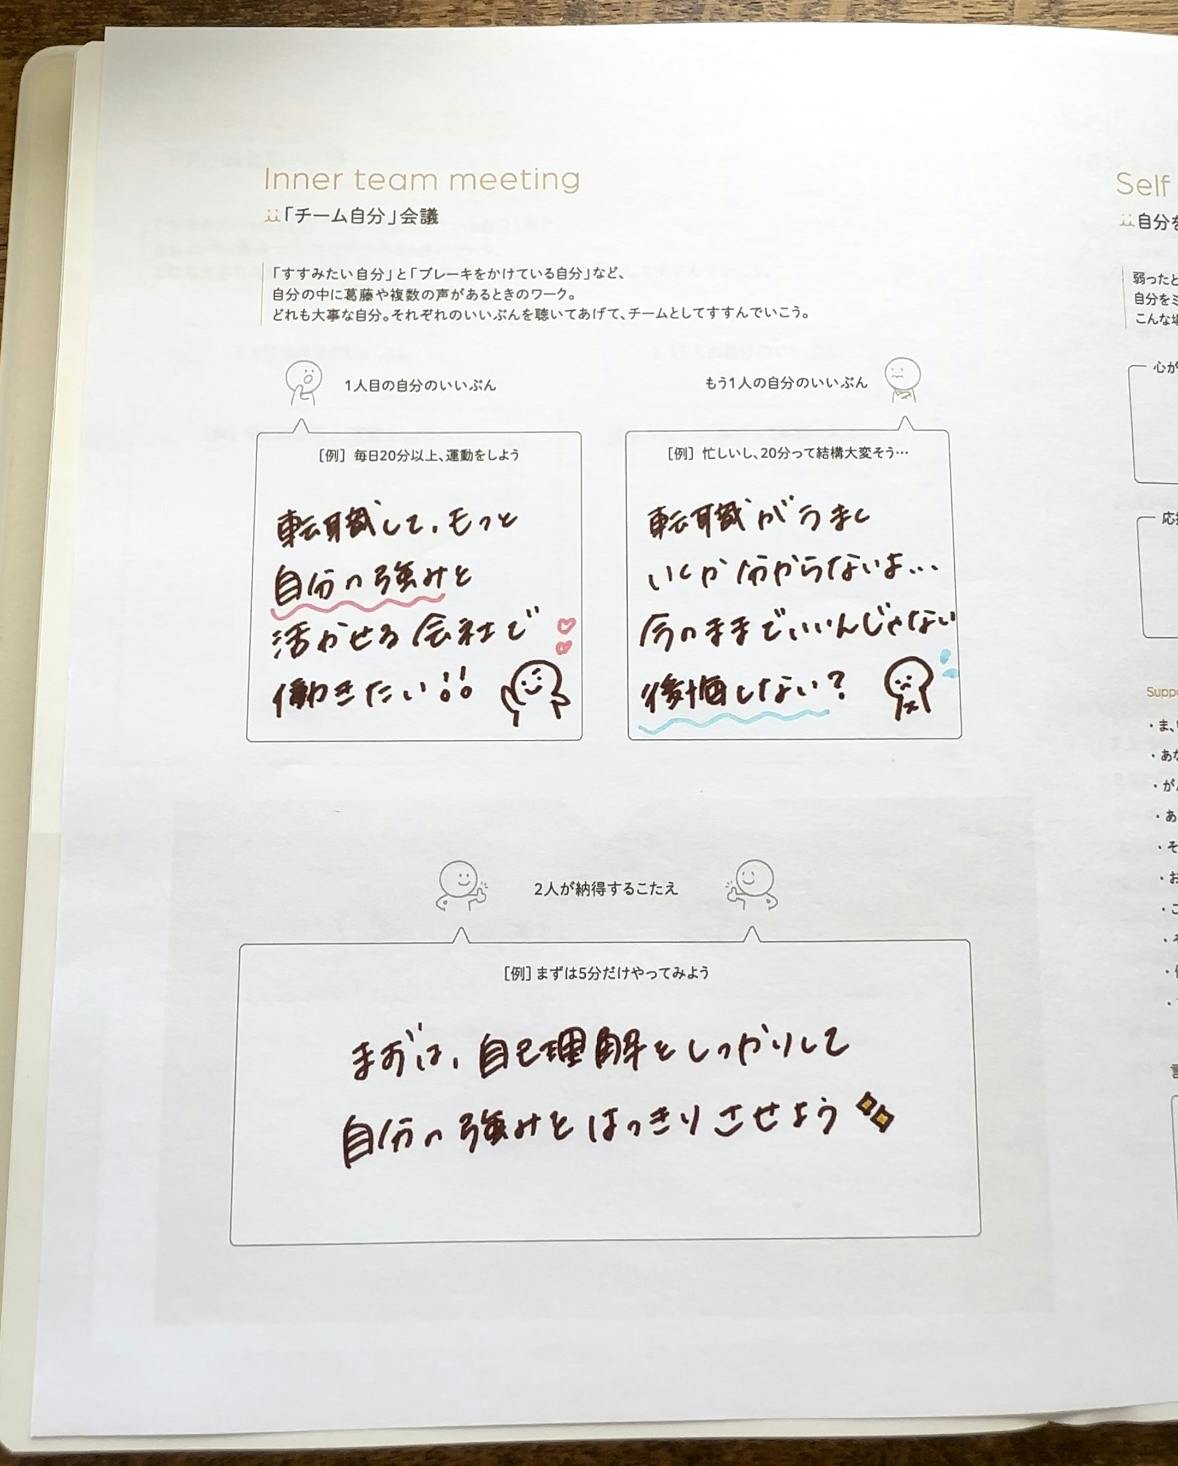 Inner team meeting
「チーム自分」会議
「すすみたい自分」と「ブレーキをかけている自分」など、
自分の中に葛藤や複数の声があるときのワーク。
どれも大事な自分。それぞれのいいぶんを聴いてあげて、チームとしてすすんでいこう。
1人目の自分のいいぶん
[例] 毎日20分以上、運動をしよう
転職して、もっと
自分の強みを
活かせる会社で
働きたい!!
もう1人の自分のいいぶん
[例] 忙しいし、20分って結構大変そう…
転職がうまく
いくか分からないよ...
今のままでいいんじゃない
後悔しない?
2人が納得するこたえ
[例] まずは5分だけやってみよう
まずは、自己理解をしっかりして
自分の強みをはっきりさせよう
Self
自分を
弱ったと
自分をミ
こんな場
心が
応援
Suppo
・ま、
・あな
・が
・あ
・そ
・お
・こ